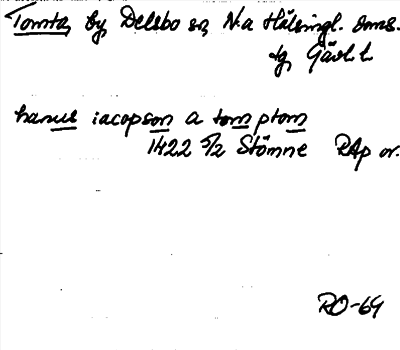 Tomta, by, Delsbo sn, N:a Hälsingl. doms.
tg, Gävl. l.
hanus iacopson a tomptom
1422 5/2 Stömne RAp or.
RO-69